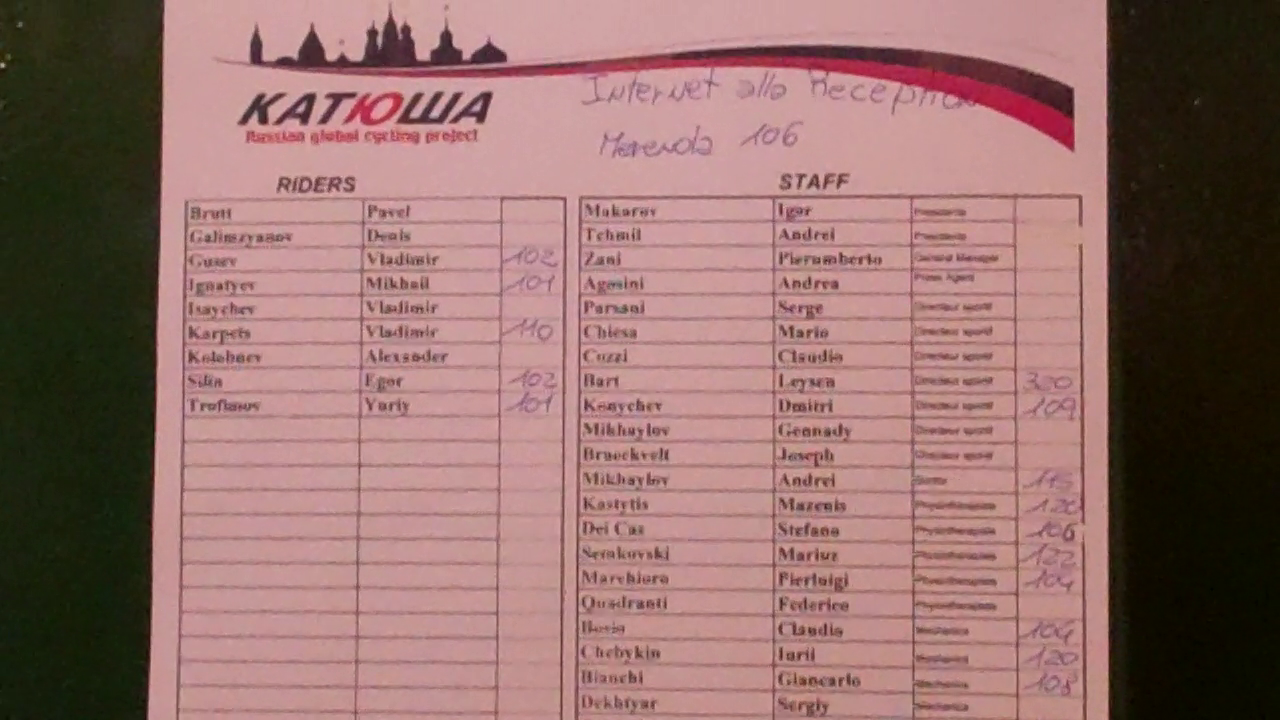 Internet alla Reception
КАТЮША
Russian global cycling project
Merenda 106
RIDERS
Brutt Pavel
Galimzyanov Denis
Gusev Vladimir 102
Ignatyev Mikhail 101
Isaychev Vladimir
Karpets Vladimir 110
Kolobnev Alexander
Silin Egor 102
Trofimov Yuriy 101
STAFF
Makarov Igor Presidente
Tchmil Andrei Presidente
Zani Pierumberto General Manager
Agostini Andrea Press Agent
Parsani Serge Directeur sportif
Chiesa Mario Directeur sportif
Cozzi Claudio Directeur sportif
Bart Leysen Directeur sportif 320
Konychev Dmitri Directeur sportif 109
Mikhaylov Gennady Directeur sportif
Brueckvelt Joseph Directeur sportif
Mikhaylov Andrei 115
Kastytis Mazenis Physiotherapiste 120
Dei Caz Stefano Physiotherapiste 106
Semkovski Mariuz Physiotherapiste 122
Marchioro Pierluigi Physiotherapiste 104
Quadranti Federico Physiotherapiste
Claudio Mechanics 104
Chebykin Iurii Mechanics 120
Bianchi Giancarlo Mechanics 108
Dekhtyar Sergiy Mechanics